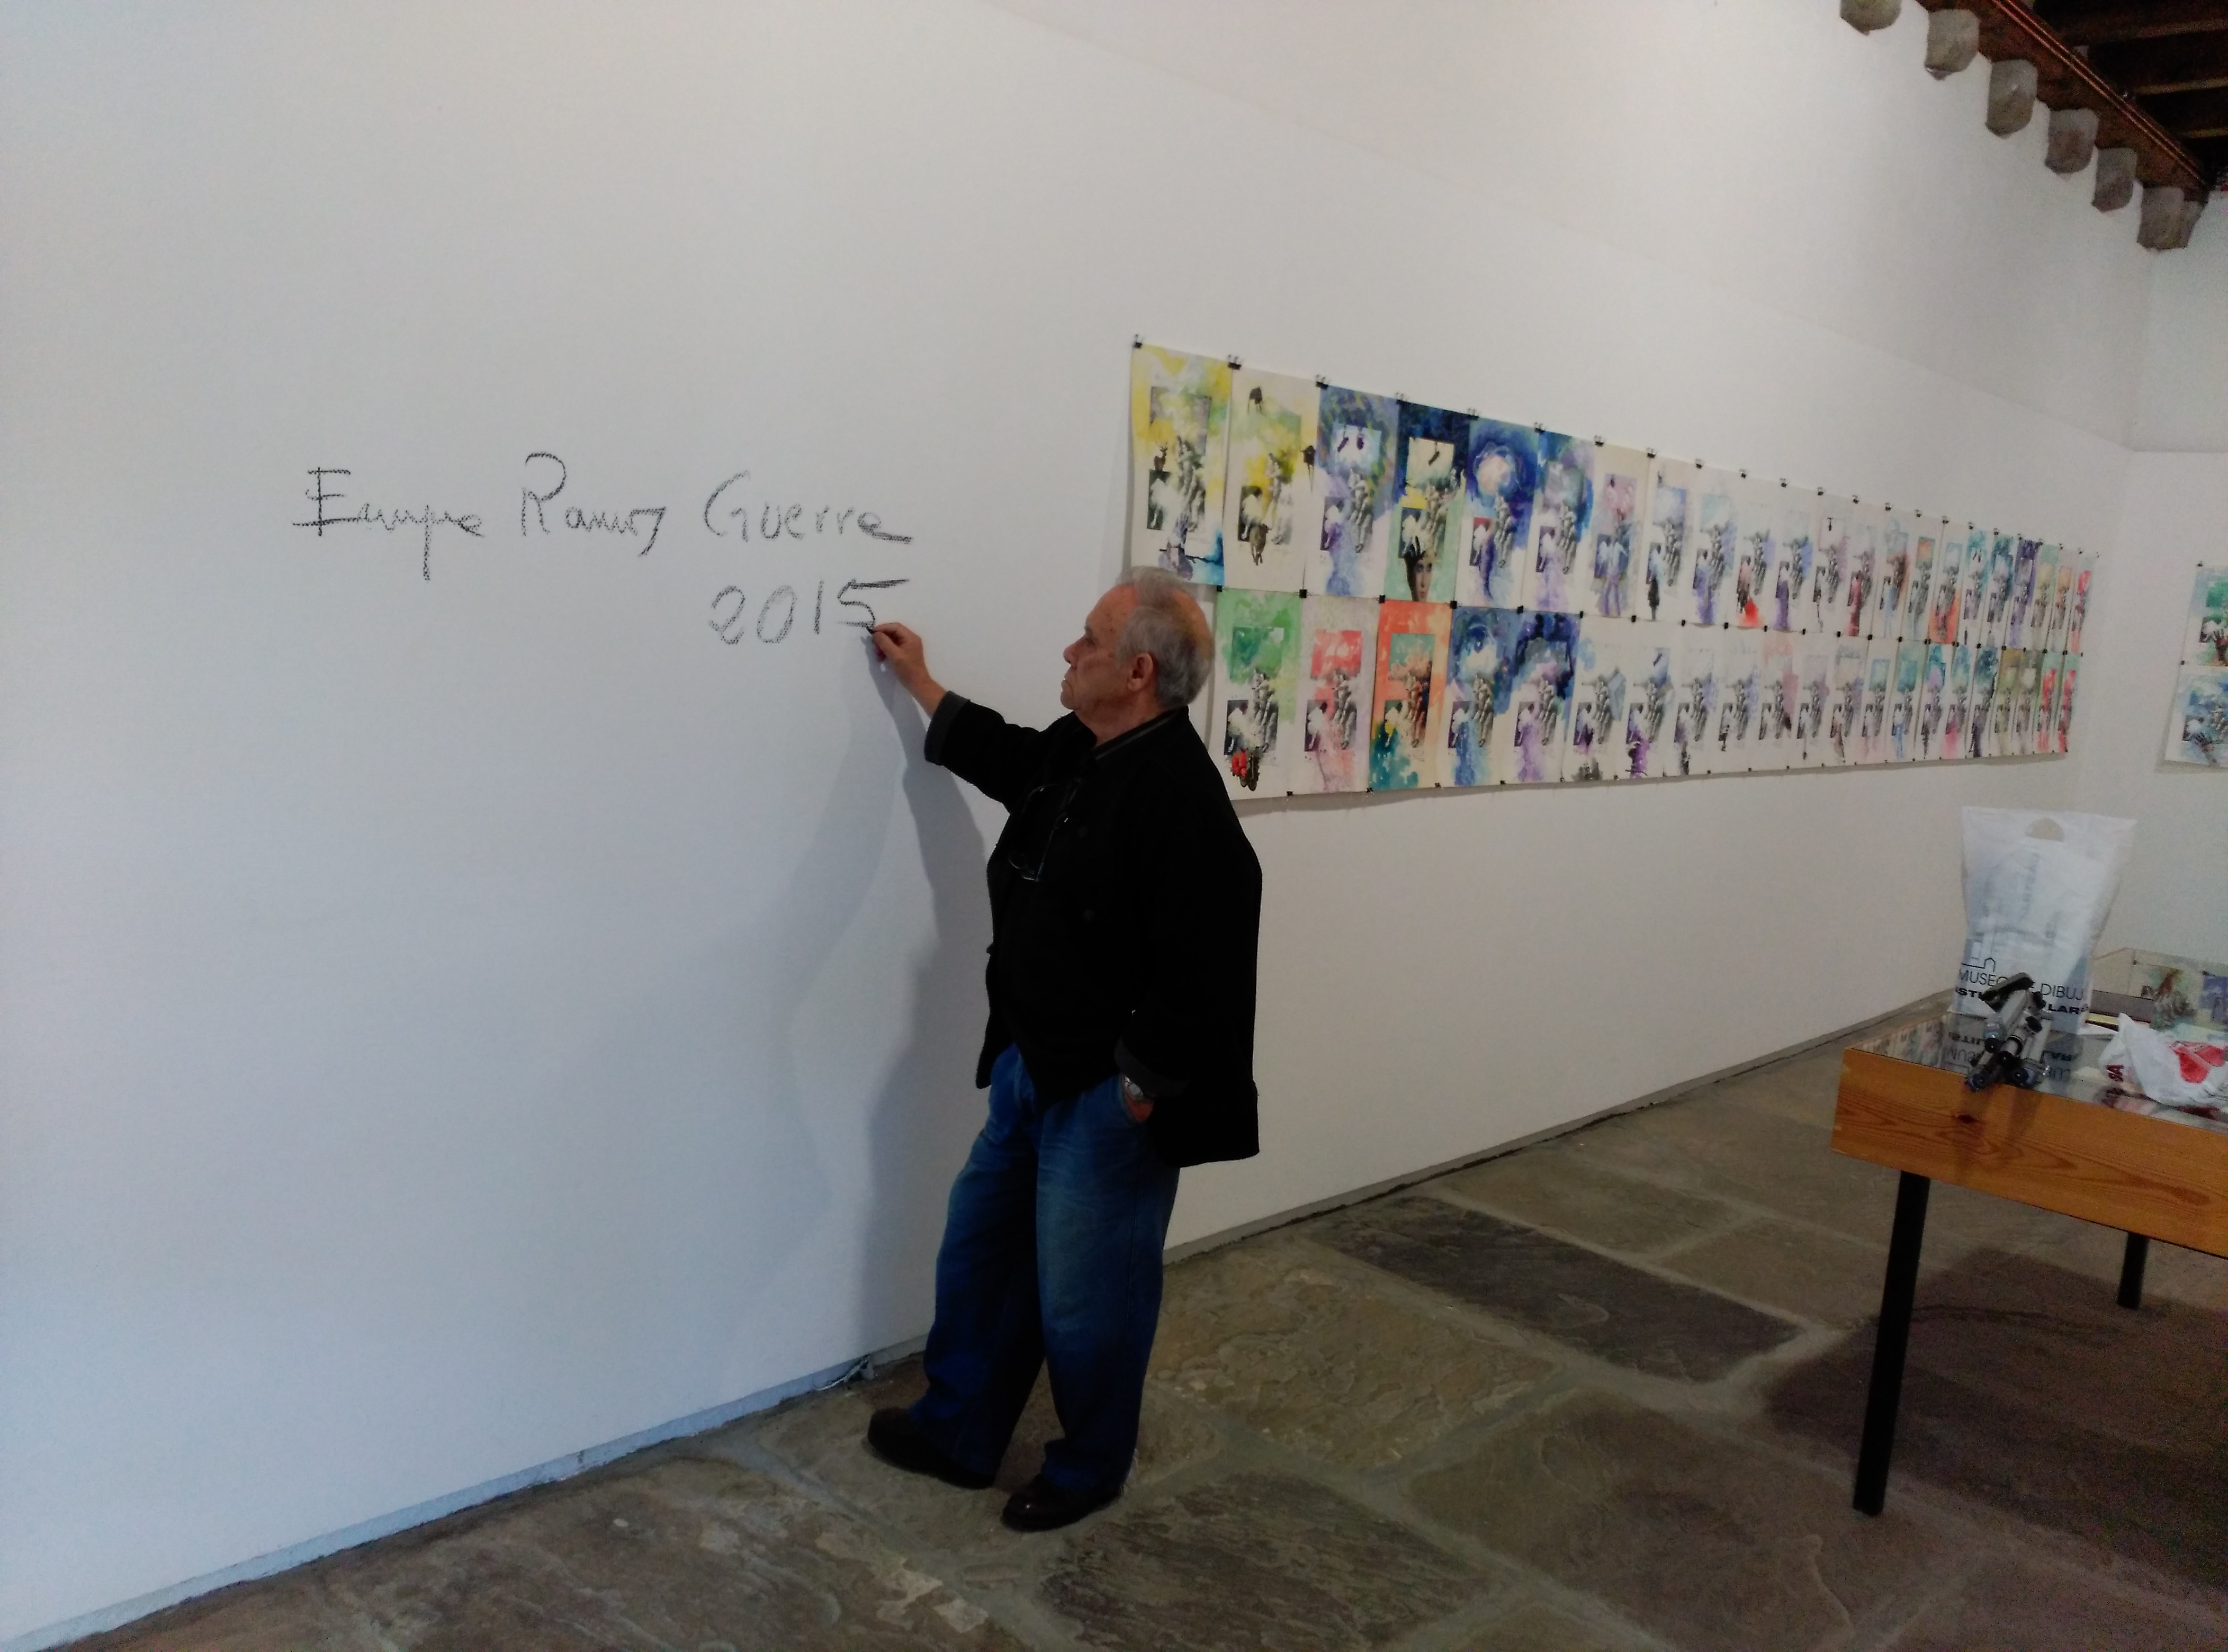 Enrique Ramos Guerra
2015
MUSEO DIBUJ